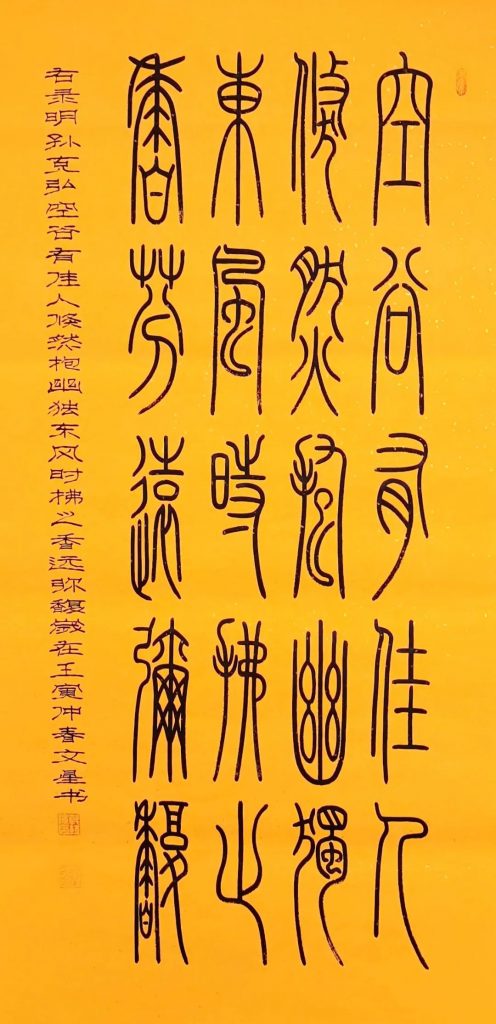 空谷有佳人
倏然抱幽獨
東風時拂之
香芬遠彌馥
右录明孙克弘空谷有佳人倏然抱幽独东风时拂之香远弥馥岁在壬寅仲春文星书